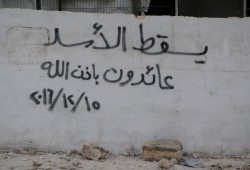 يسقط الأسد
عائدون باذن الله
٢٠١٦/١٢/١٥